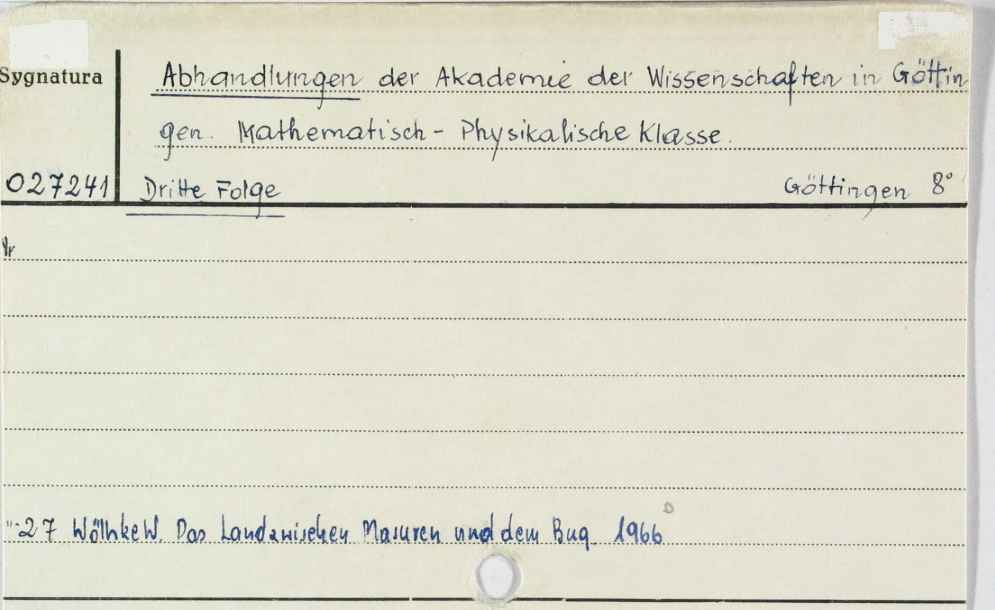 Sygnatura
Abhandlungen der Akademie der Wissenschaften in Göttin
gen. Mathematisch - Physikalische Klasse.
027241 Dritte Folge Göttingen 8°
Nr
"27 Wölhke W. Das Land zwischen Masuren und dem Bug. 1966 D